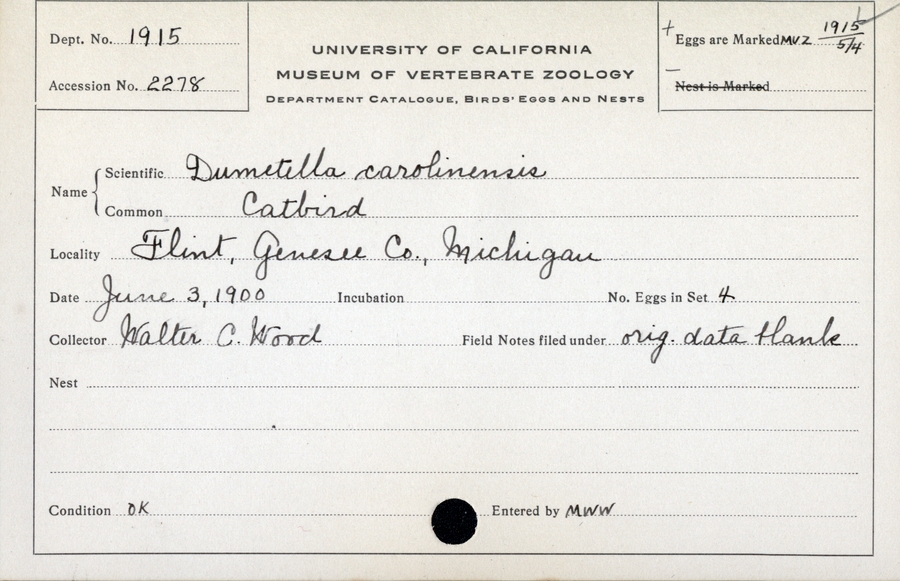 Dept. No. 1915
Accession No. 2278
UNIVERSITY OF CALIFORNIA
MUSEUM OF VERTEBRATE ZOOLOGY
DEPARTMENT CATALOGUE, BIRDS' EGGS AND NESTS
+ Eggs are Marked MVZ 1915 5/4
— Nest is Marked
Name
Scientific Dumetella carolinensis
Common Catbird
Locality Flint, Genesee Co., Michigan
Date June 3, 1900 Incubation No. Eggs in Set 4
Collector Walter C. Wood Field Notes filed under orig. data blank
Nest
Condition OK Entered by MWW